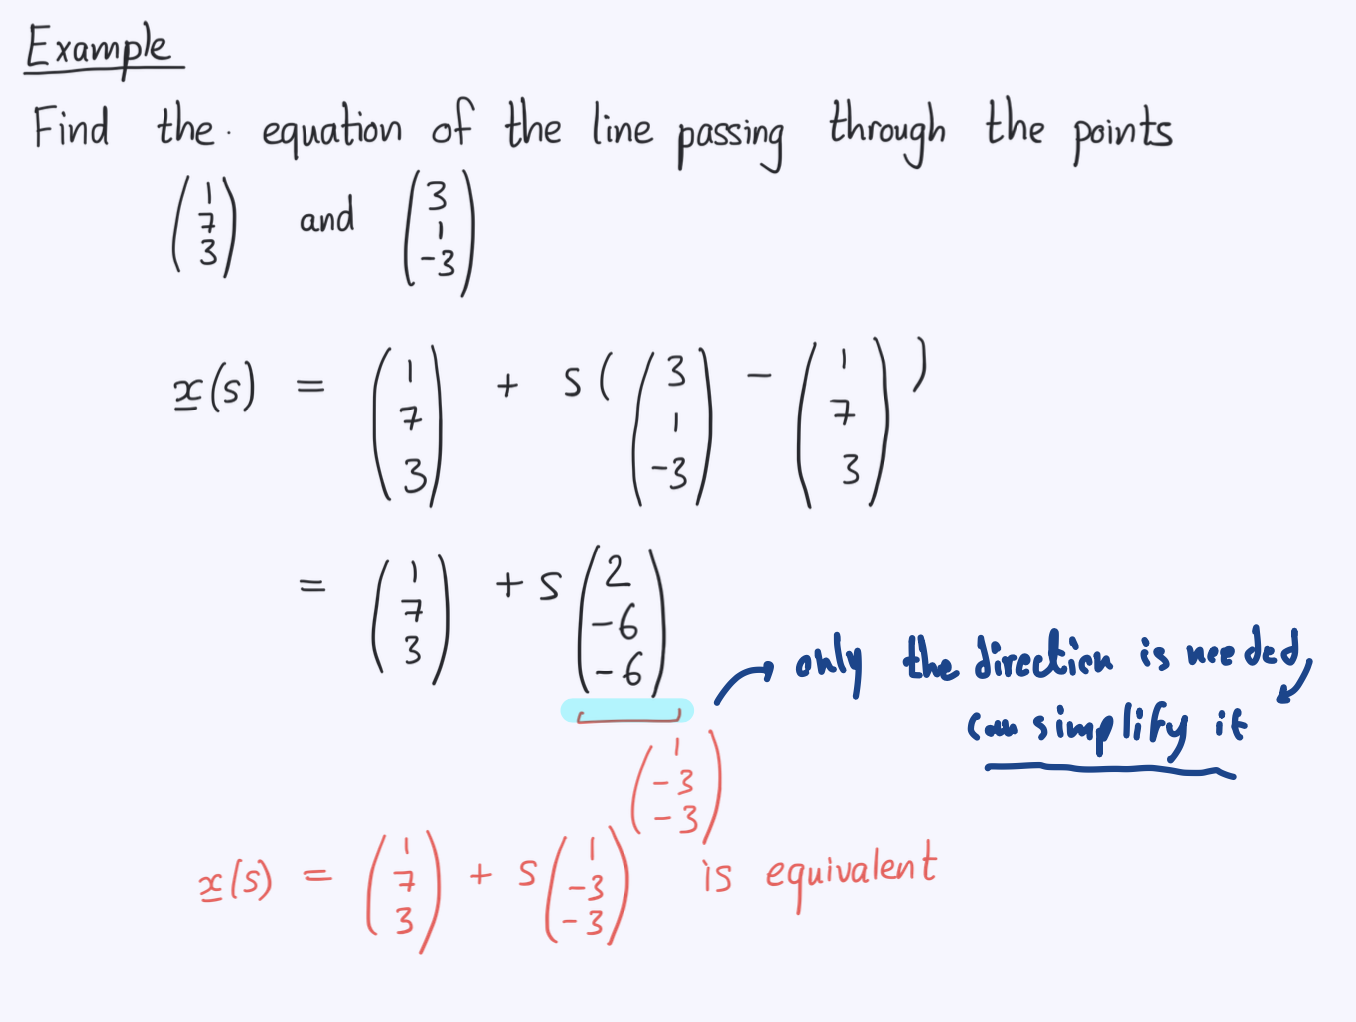 Example
Find the equation of the line passing through the points
(1 7 3) and (3 1 -3)
x(s) = (1 7 3) + s((3 1 -3) - (1 7 3))
= (1 7 3) + s(2 -6 -6)
only the direction is needed,
can simplify it
(1 -3 -3)
x(s) = (1 7 3) + s(1 -3 -3) is equivalent